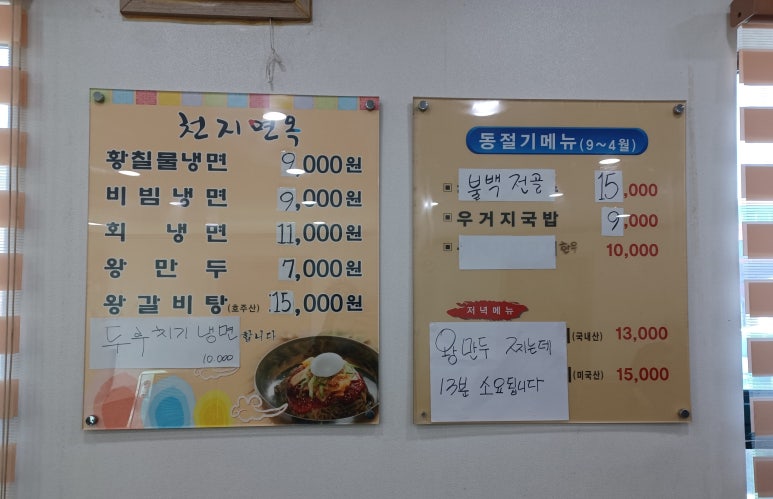 천지면옥
황칠물냉면 9,000원
비빔냉면 9,000원
회 냉면 11,000원
왕 만 두 7,000원
왕 갈 비 탕 (호주산) 15,000원
두루치기 냉면 합니다
10.000
동절기메뉴(9~4월)
불백 전골 15,000
우거지국밥 9,000
10,000
저녁메뉴
(국내산) 13,000
(미국산) 15,000
왕만두 찌는데
13분 소요됩니다